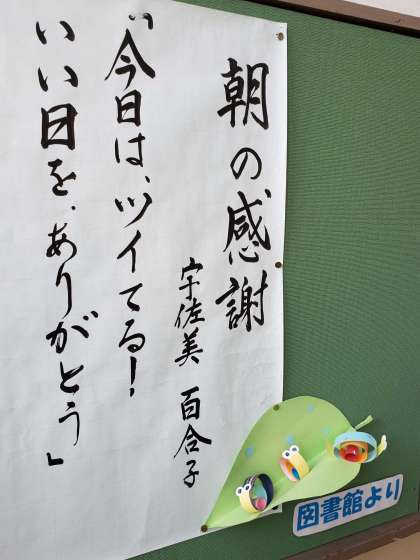 朝の感謝
宇佐美 百合子
“今日は、ツイてる!
いい日を、ありがとう」
図書館より